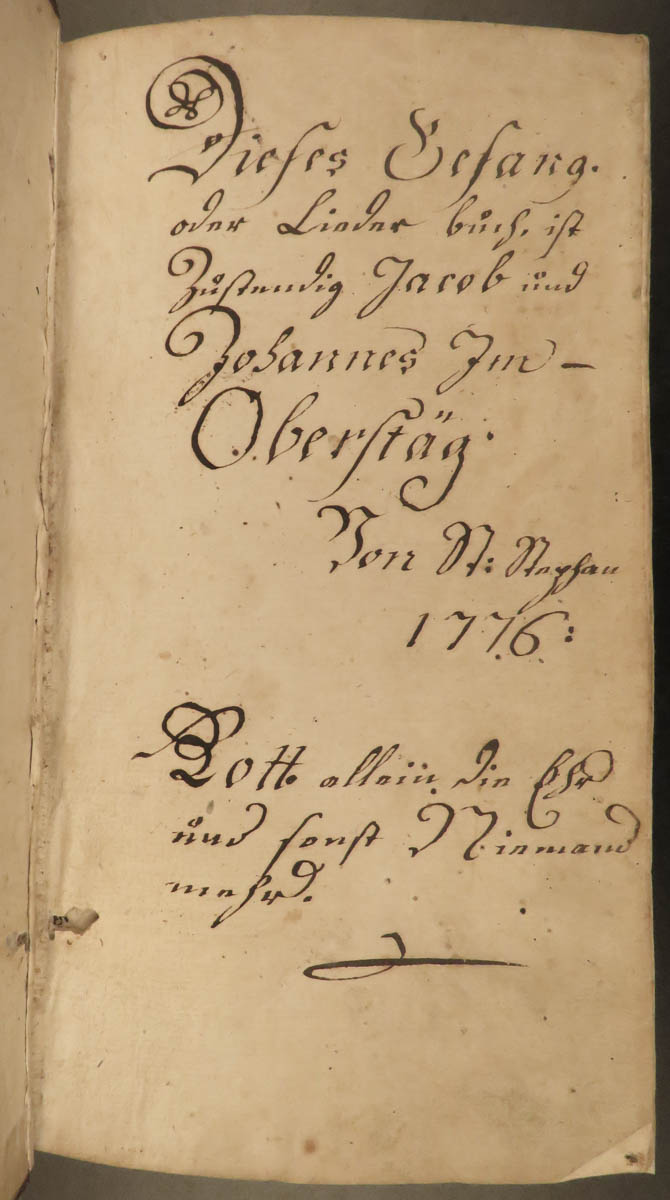 Dieses Gesang.
oder Lieder buch. ist
Zustendig Jacob und
Johannes Im-
Oberstäg.
Von St: Stephan
1776:
Gott allein die Ehr
und sonst Niemand
mehr.